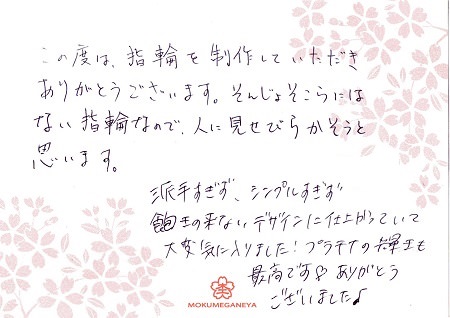 この度は、指輪を制作していただき
ありがとうございます。そんじょそこらには
ない指輪なので、人に見せびらかそうと
思います。
派手すぎず、シンプルすぎず
飽きの来ないデザインに仕上がっていて
大変気に入りました！プラチナの輝きも
最高です♡ ありがとう
ございました♪
MOKUMEGANEYA